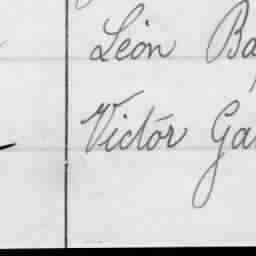 Léon Ba
Victór Ga